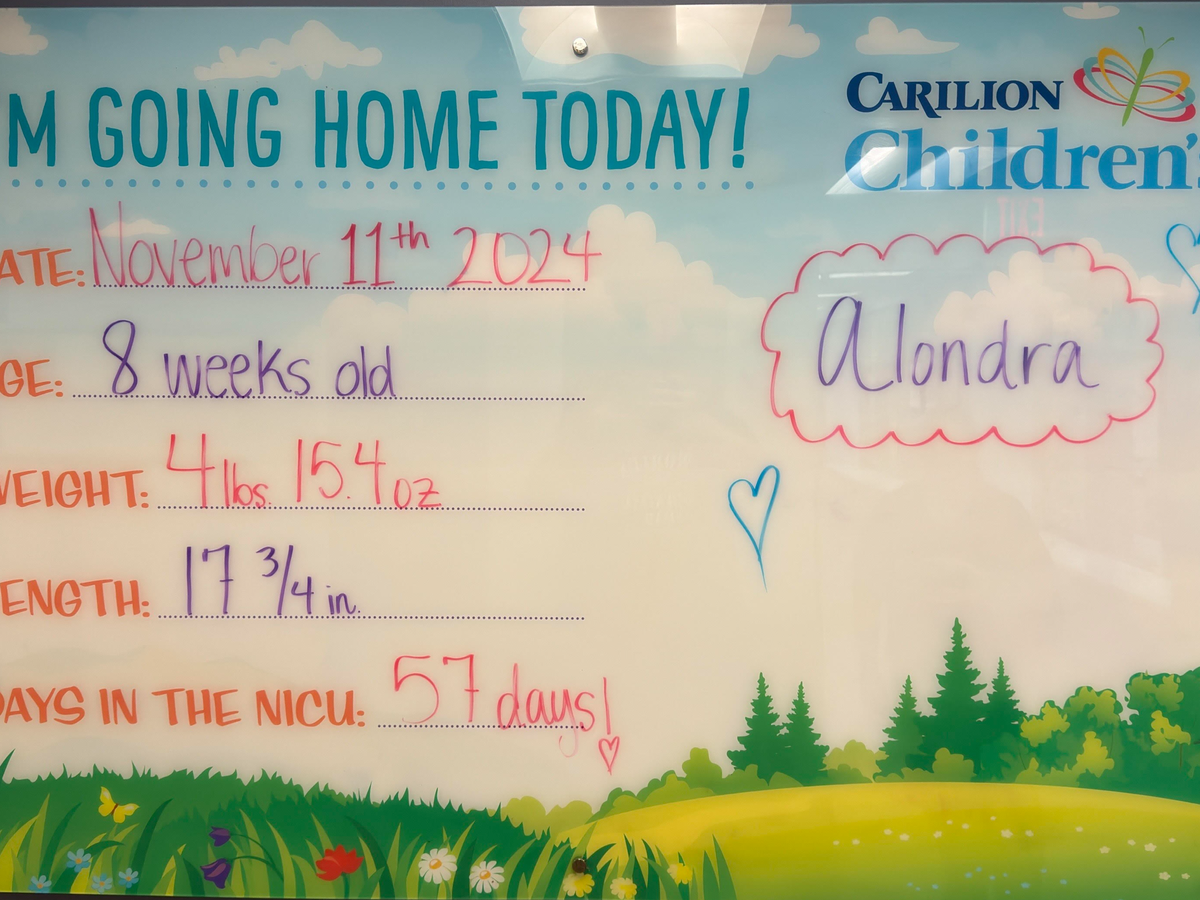 M GOING HOME TODAY!
CARILION
Children's
ATE: November 11th 2024
Alondra
GE: 8 weeks old
WEIGHT: 4 lbs. 15.4 oz
ENGTH: 17 3/4 in.
DAYS IN THE NICU: 57 days!